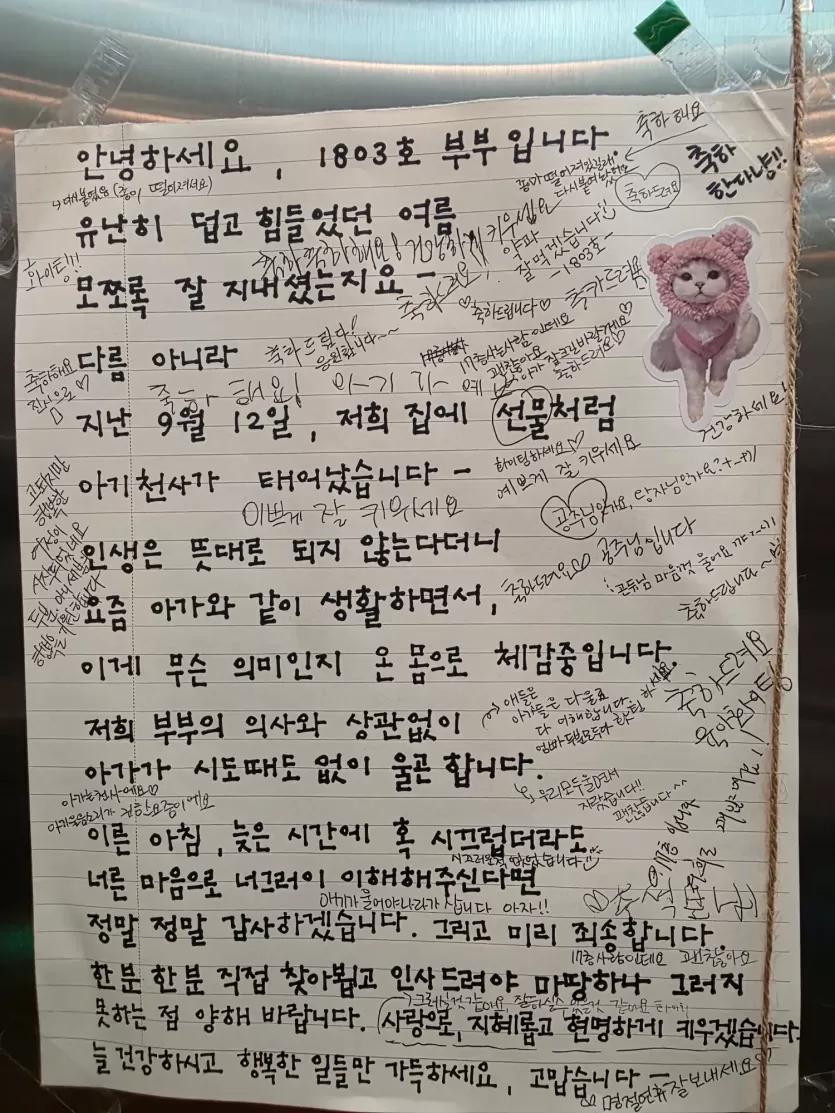 안녕하세요, 1803호 부부입니다
축하해요
축하
한다냥!!
축하드려요
유난히 덥고 힘들었던 여름
약과
잘먹겠습니다
-1803호-
화이팅!!
모쪼록 잘 지내셨는지요-
축하드려요,
♡축하드립니다♡
다름 아니라
축하드립니다!
응원합니다~~
17층사는사람인데요
괜찮아요
축하드려요♡
축하해요
진심으로♡
지난 9월 12일, 저희 집에 선물처럼
건강하세요
아기천사가 태어났습니다-
화이팅하세요♡
예쁘게 잘 키우세요
이쁘게 잘 키우세요
인생은 뜻대로 되지 않는다더니
공주님입니다
요즘 아가와 같이 생활하면서,
축하드려요
축하드립니다~
이게 무슨 의미인지 온 몸으로 체감중입니다.
축하드려요
저희 부부의 의사와 상관없이
애들은
아가들은 다 울죠
다 이해합니다.
아가가 시도때도 없이 울곤 합니다.
우리모두울면서
자랐습니다!!
괜찮습니다~~
아가는천사에요♡
아가울음소리가 귀한요즘이에요
이른 아침, 늦은 시간에 혹 시끄럽더라도
시끄러운적 없었습니다
너른 마음으로 너그러이 이해해주신다면
아기가울어야나라가 삽니다 아자!!
정말 정말 감사하겠습니다. 그리고 미리 죄송합니다
17층사람인데요 괜찮아요
한분 한분 직접 찾아뵙고 인사드려야 마땅하나 그러지
못하는 점 양해 바랍니다. 사랑으로, 지혜롭고 현명하게 키우겠습니다.
늘 건강하시고 행복한 일들만 가득하세요, 고맙습니다-
명절연휴잘보내세요